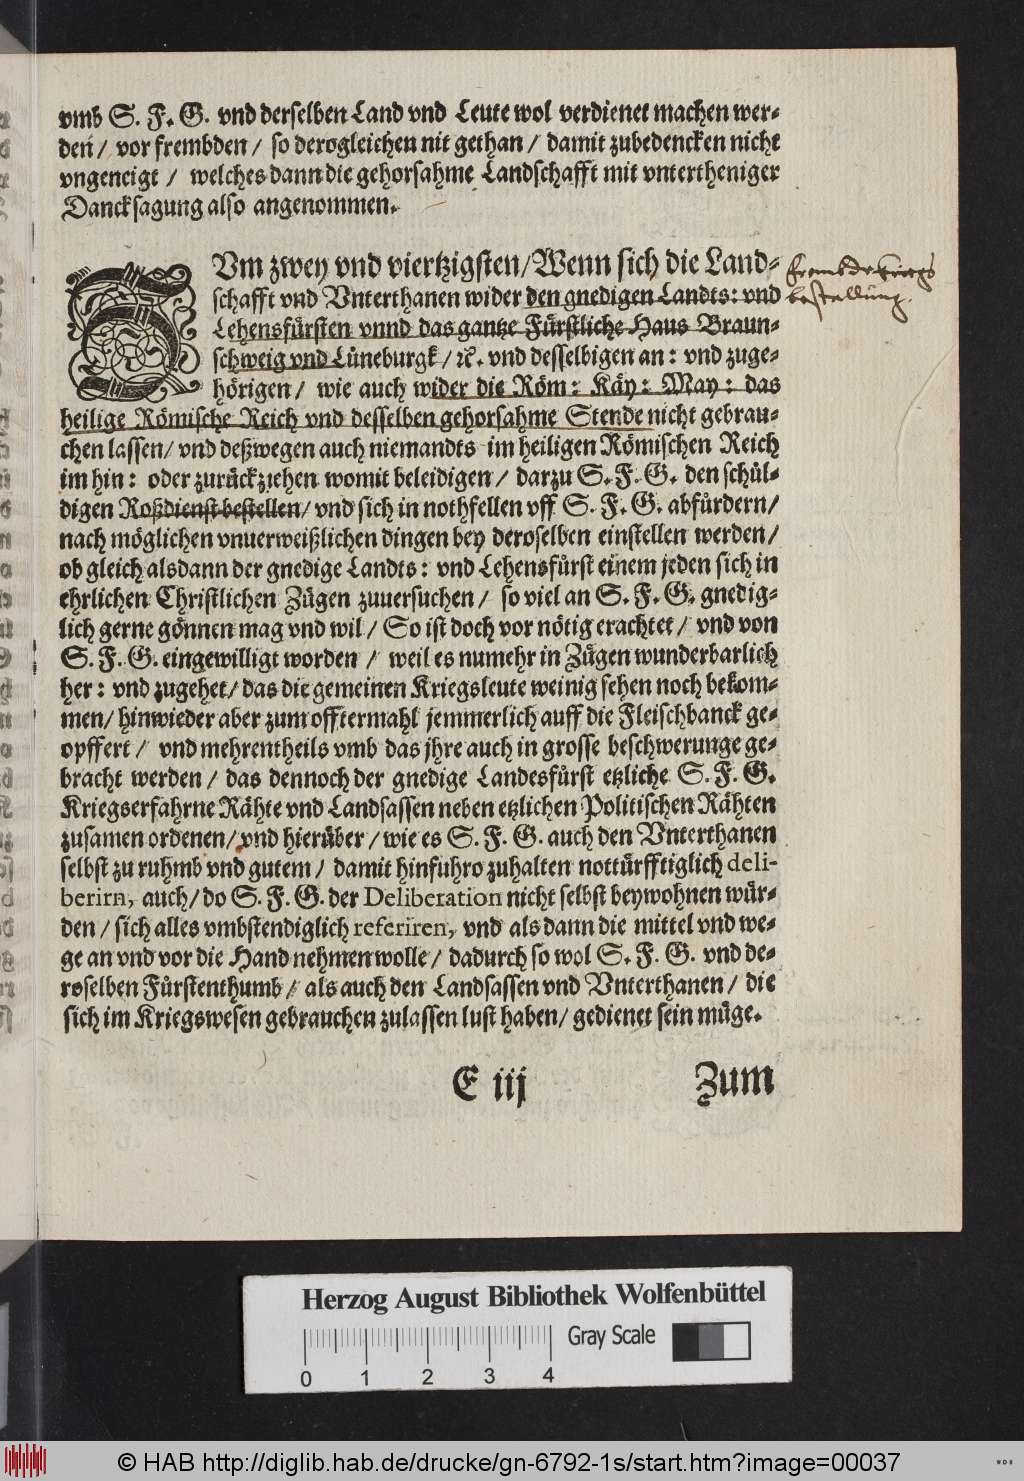 vmb S. F. G. vnd derselben Land vnd Leute wol verdienet machen wer-
den / vor frembden / so derogleichen nit gethan / damit zubedencken nicht
vngeneigt / welches dann die gehorsahme Landschafft mit vntertheniger
Dancksagung also angenommen.
ZVm zwey vnd viertzigsten / Wenn sich die Land-
schafft vnd Vnterthanen wider den gnedigen Landts: vnd
Lehensfürsten vnnd das gantze Fürstliche Haus Braun-
schweig vnd Lüneburgk / ꝛc. vnd desselbigen an: vnd zuge-
hörigen / wie auch wider die Röm: Käy: May: das
heilige Römische Reich vnd desselben gehorsahme Stende nicht gebrau-
chen lassen / vnd deßwegen auch niemandts im heiligen Römischen Reich
im hin: oder zurückziehen womit beleidigen / darzu S. F. G. den schül-
digen Roßdienst bestellen / vnd sich in nothfellen vff S. F. G. abfürdern /
nach möglichen vnuerweißlichen dingen bey deroselben einstellen werden /
ob gleich alsdann der gnedige Landts: vnd Lehensfürst einem jeden sich in
ehrlichen Christlichen Zügen zuuersuchen / so viel an S. F. G. gnedig-
lich gerne gönnen mag vnd wil / So ist doch vor nötig erachtet / vnd von
S. F. G. eingewilligt worden / weil es numehr in Zügen wunderbarlich
her: vnd zugehet / das die gemeinen Kriegsleute weinig sehen noch bekom-
men / hinwieder aber zum offtermahl jemmerlich auff die Fleischbanck ge-
opffert / vnd mehrentheils vmb das jhre auch in grosse beschwerunge ge-
bracht werden / das dennoch der gnedige Landesfürst etzliche S. F. G.
Kriegserfahrne Rähte vnd Landsassen neben etzlichen Politischen Rähten
zusamen ordenen / vnd hierüber / wie es S. F. G. auch den Vnterthanen
selbst zu ruhmb vnd gutem / damit hinfuhro zuhalten nottürfftiglich deli-
berirn, auch / do S. F. G. der Deliberation nicht selbst beywohnen wür-
den / sich alles vmbstendiglich referiren, vnd als dann die mittel vnd we-
ge an vnd vor die Hand nehmen wolle / dadurch so wol S. F. G. vnd de-
roselben Fürstenthumb / als auch den Landsassen vnd Vnterthanen / die
sich im Kriegswesen gebrauchen zulassen lust haben / gedienet sein müge.
E iij Zum
frembde kriegs
bestallung.
Herzog August Bibliothek Wolfenbüttel
Gray Scale
0 1 2 3 4
© HAB http://diglib.hab.de/drucke/gn-6792-1s/start.htm?image=00037